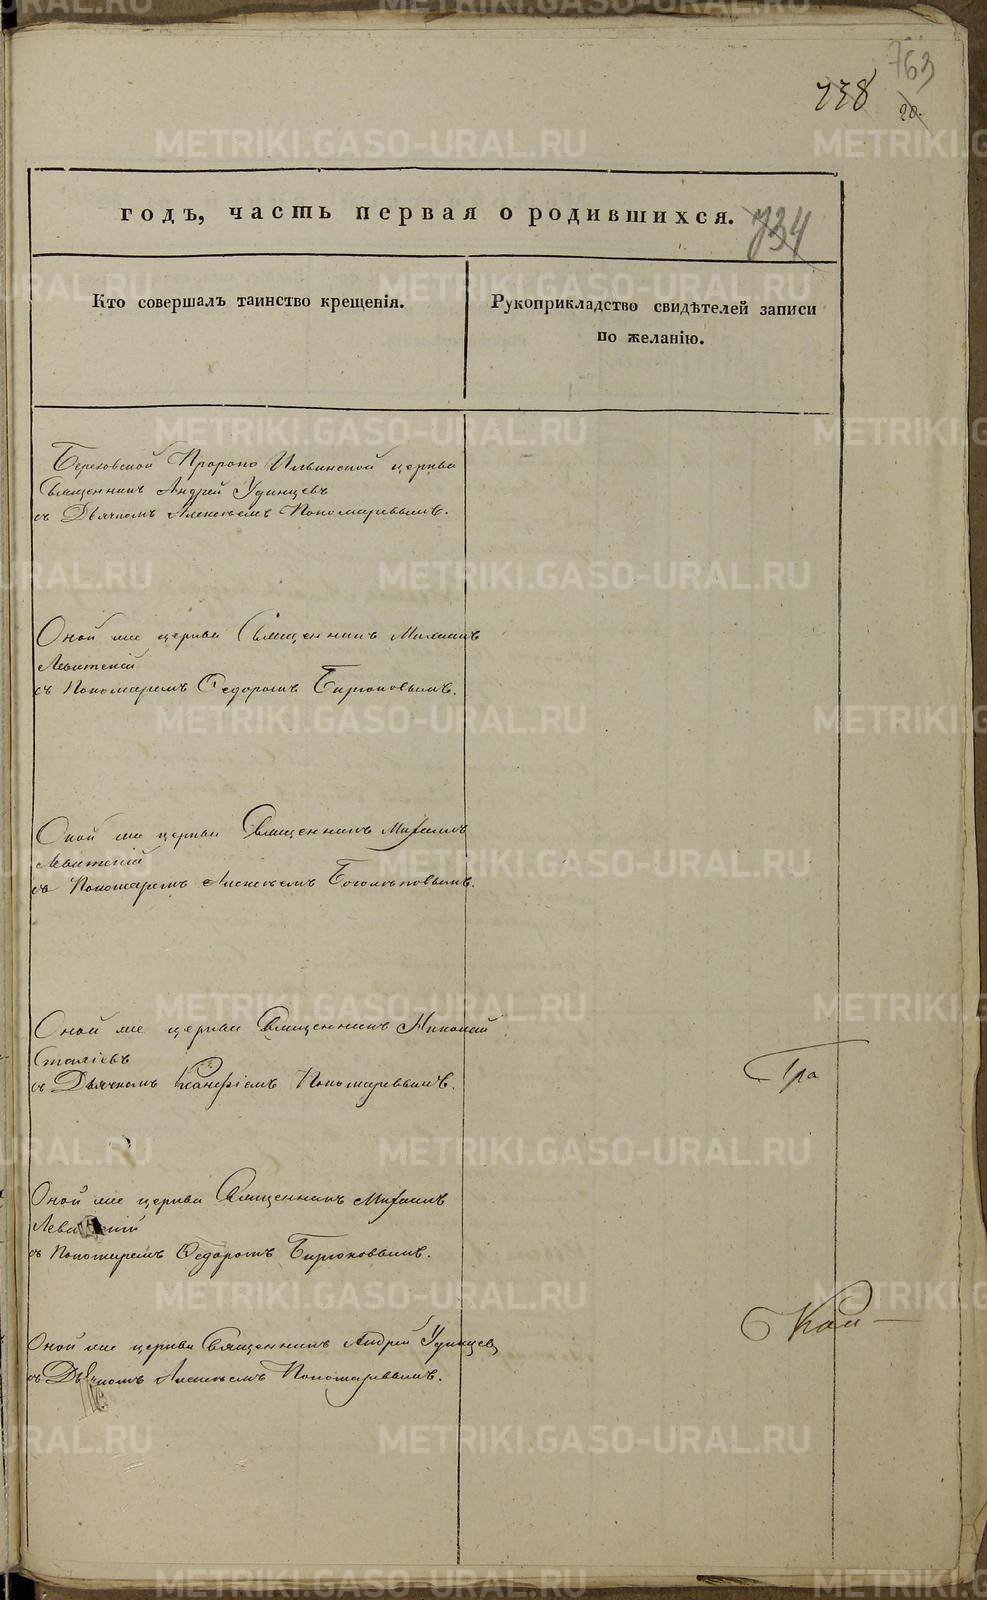 763
738
20.
годъ, часть первая о родившихся.
734
Кто совершалъ таинство крещенія.
Рукоприкладство свидѣтелей записи
по желанію.
Пророко Ильинской церкви
Священникъ Андрей Удинцевъ
съ Дьячкомъ Алексѣемъ Пономаревымъ.
Оной же церкви Священникъ Михаилъ
Левитскій
съ Пономаремъ Федоромъ Бирюковымъ.
Оной же церкви Священникъ Михаилъ
Левитскій
съ Пономаремъ Алексѣемъ Боголѣповымъ.
Оной же церкви Священникъ Николай
съ Дьячкомъ Ксанфіемъ Пономаревымъ.
Гра
Оной же церкви Священникъ Михаилъ
Левитскій
съ Пономаремъ Федоромъ Бирюковымъ.
Оной же церкви Священникъ Андрей Удинцев
съ Дьячкомъ Алексѣемъ Пономаревымъ.
METRIKI.GASO-URAL.RU